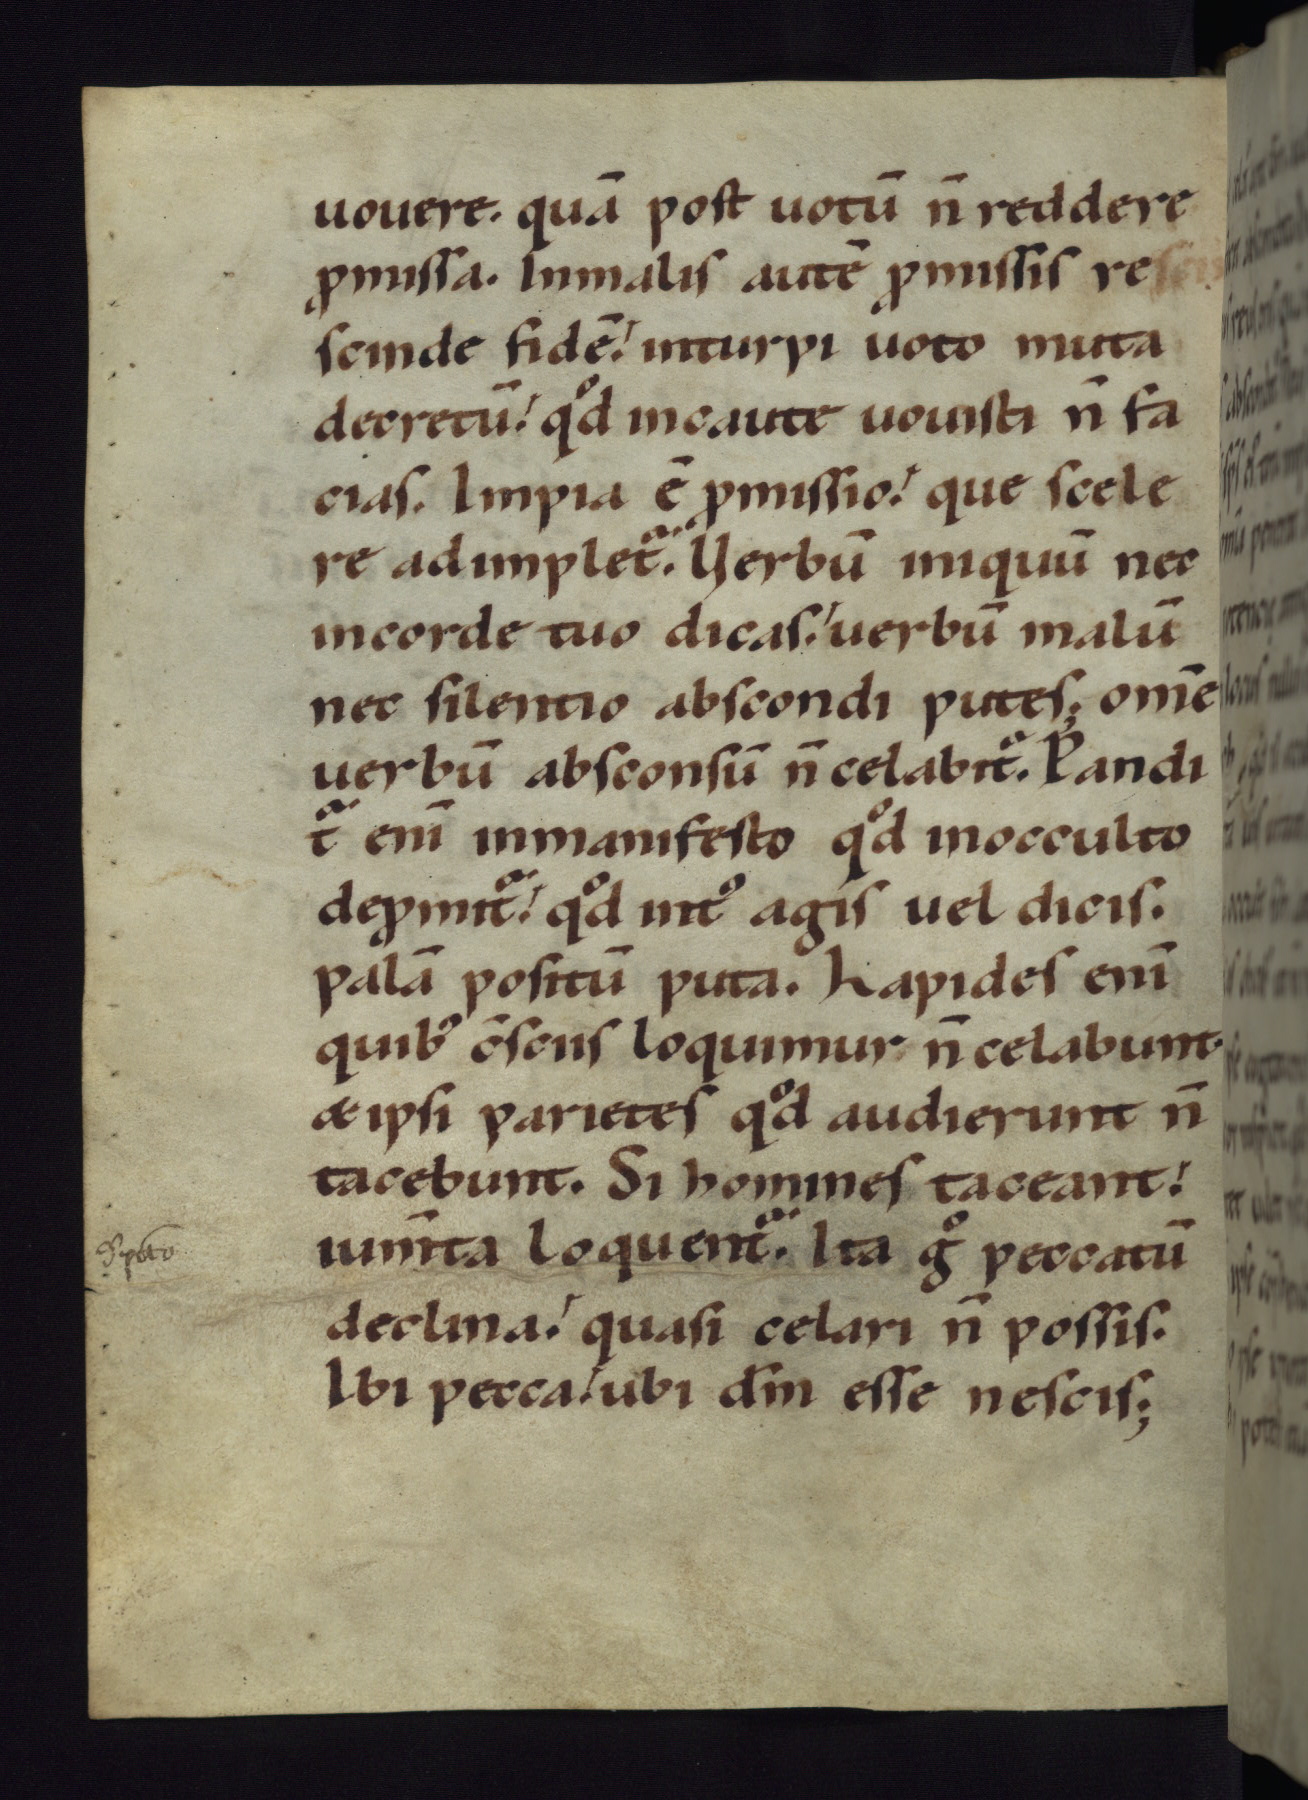 uouere. quā post uotū n̄ reddere
ꝓmissa. Inmalis autē ꝓmissis re
scinde fidē. inturpi uoto muta
decretū. qͦd incaute uouisti n̄ fa
cias. Impia ē ꝓmissio. que scele
re adimplet᷑. Verbū iniquū nec
incorde tuo dicas. uerbū malū
nec silentio abscondi putes; om̄e
uerbū absconsū n̄ celabit᷑. Pandi
t᷑ eni̅ inmanifesto qͦd inocculto
deꝓmit᷑. qͦd intͦ agis uel dicis.
palā positū puta. Lapides eni̅
quibꝰ c̄sciis loquimur n̄ celabunt.
& ipsi parietes qͦd audierunt n̄
tacebunt. Si homines taceant.
ium̄ta loquent᷑. Ita gͦ peccatū
declina. quasi celari n̄ possis.
Ibi pecca. ubi dm̄ esse nescis;